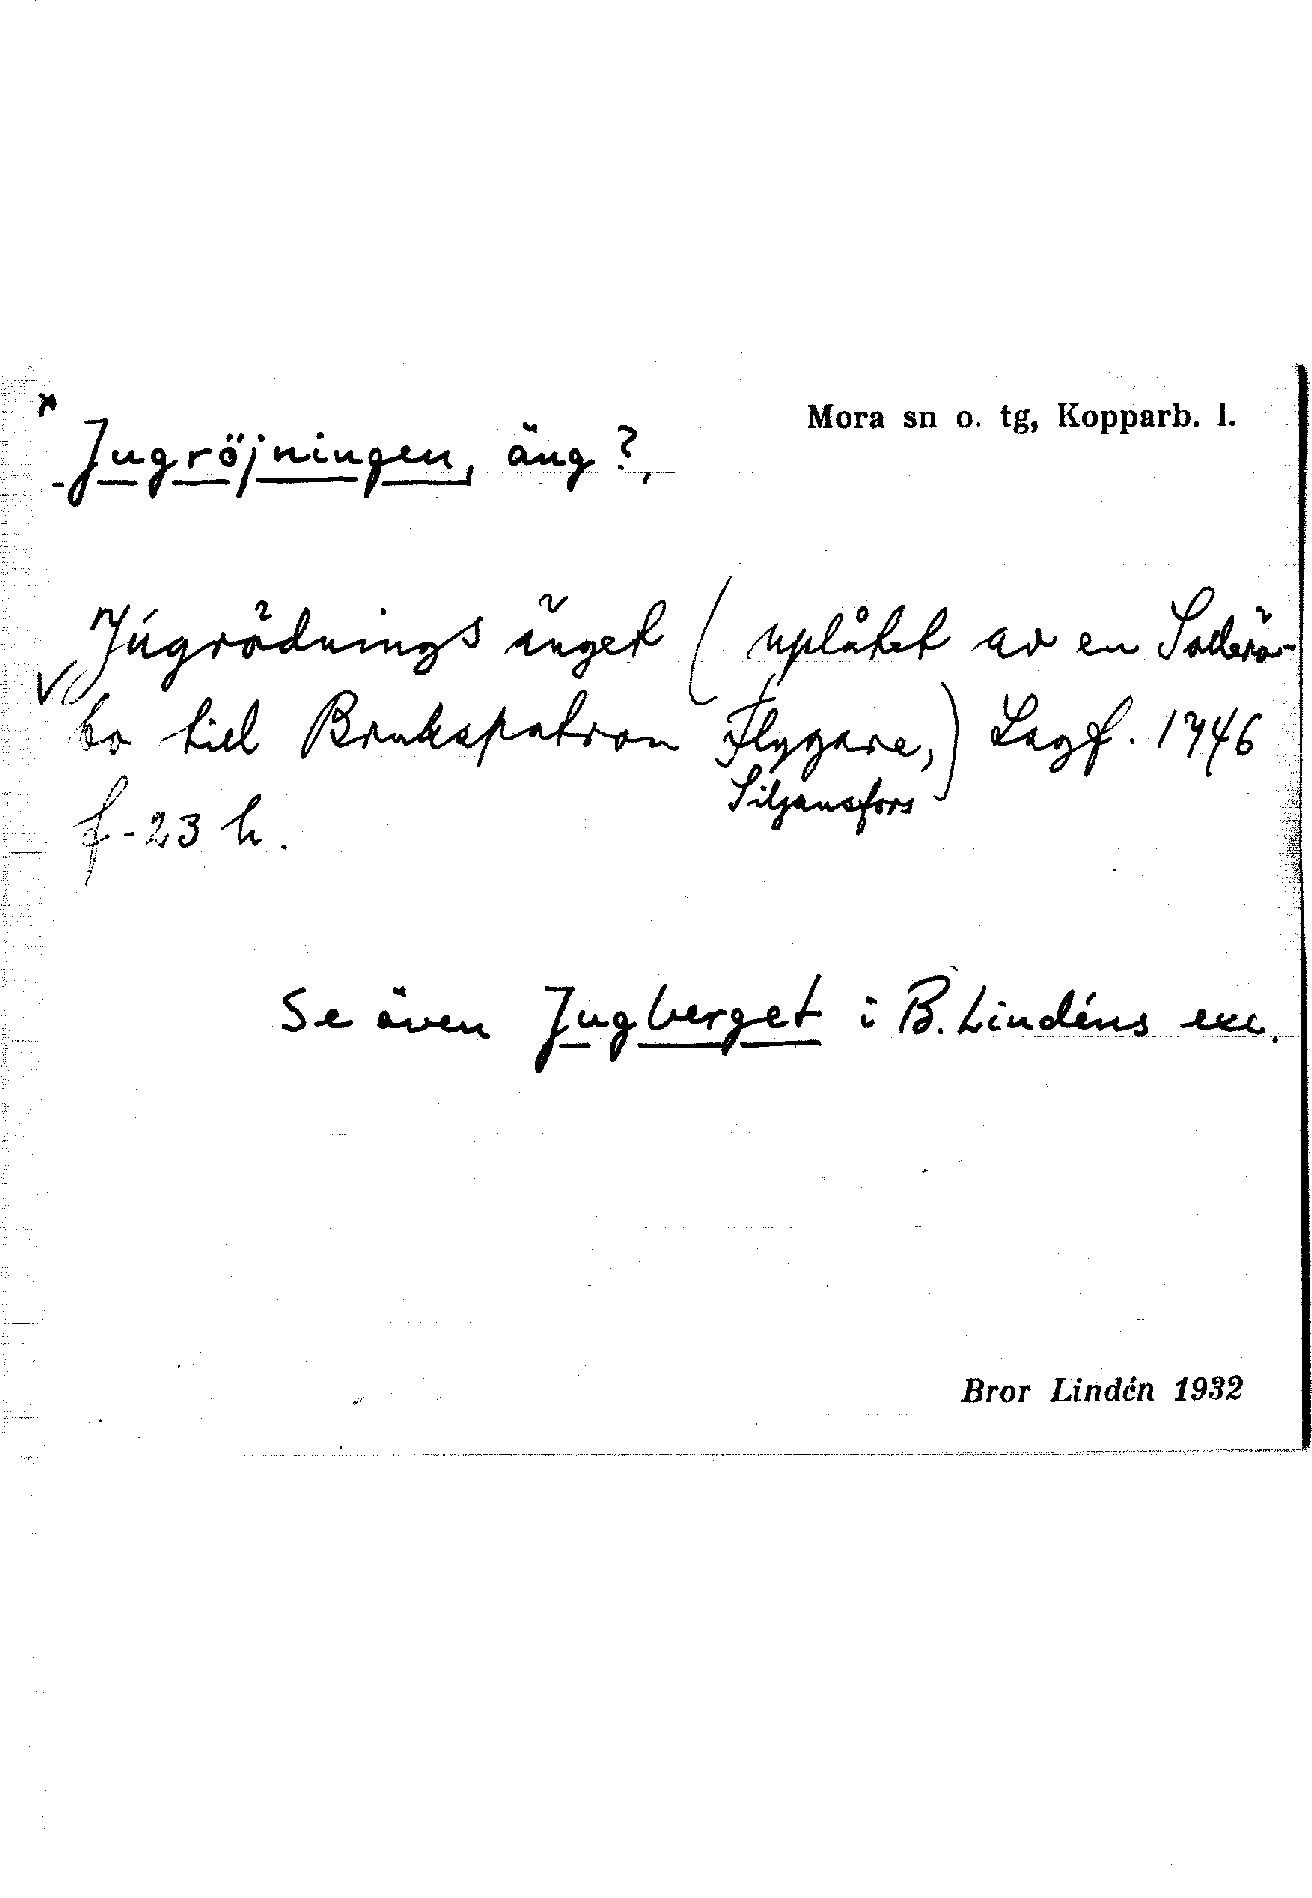 Mora sn o. tg, Kopparb. l.
Jugröjningen, äng?,
Jugrödnings änget (uplåtet av en Sollerö-
bo till Brukspatron Flygare,) Lagf. 1746
Siljansfors
f-23 h.
Se även Jugberget i B. Lindéns exc.
Bror Lindén 1932